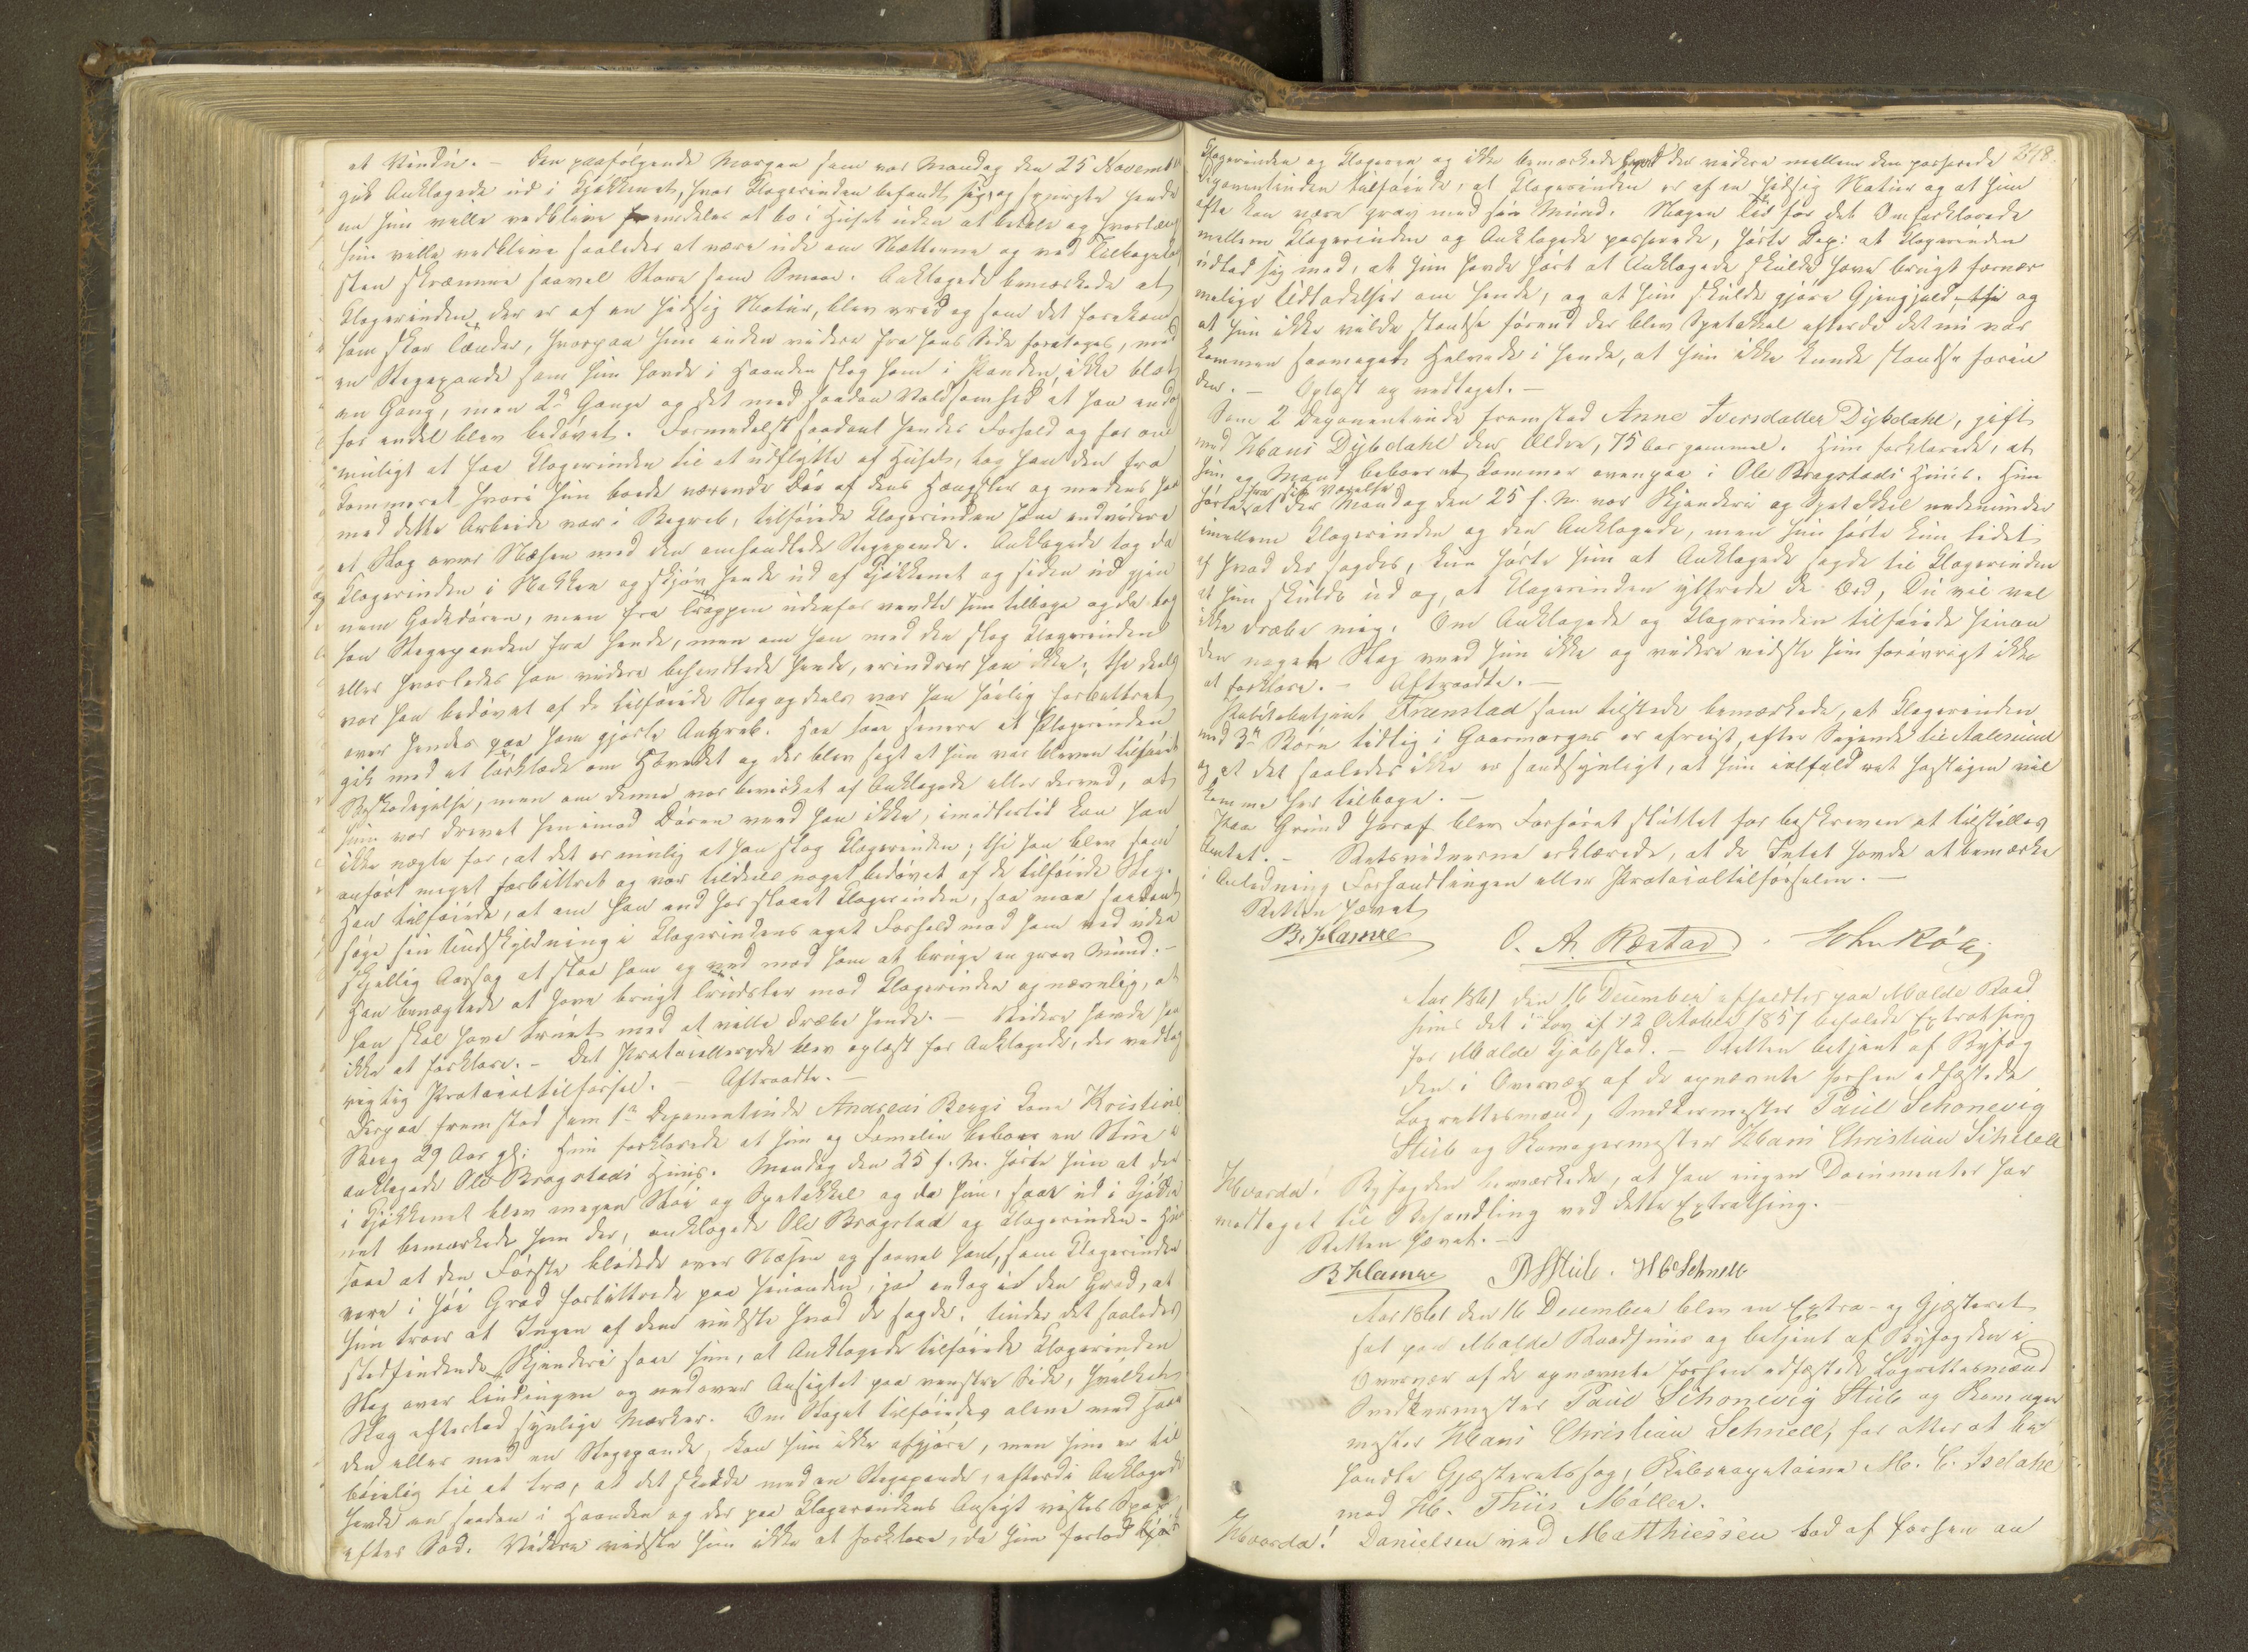 et Vindu. – Den paafølgende Morgen som var Mandag den 25 November
gik Anklagede ud i Kjøkkenet, hvor Klagerinden befandt sig, og spurgte hende
om hun ville vedblive fremdeles at bo i Huset uden at betale og hvorlænge
hun ville vedblive saaledes at være ude om Nætterne og ved Tilbagekom
sten skræmme saavel Store som Smaa. Anklagede bemærkede at
Klagerinden, der er af en hidsig Natur, blev vred og som det forekom
ham skar Tænder, hvorpaa hun inden videre fra hans Side foretoges, med
en Stegepande som hun havde i Haanden slog ham i Panden, ikke blot
en Gang, men 2de Gange og det med saadan Voldsomhed at han endog
for endel blev bedøvet. Formedelst saadant hendes Forhold og for om
muligt at faa Klagerinden til at udflytte af Huset, tog han den fra
Kammeret hvori hun boede værende Dør af dens Hængsler og medens han
med dette Arbeide var i Begreb, tilføiede Klagerinden ham endvidere
et Slag over Næsen med den omhandlede Stegepande. Anklagede tog da
Klagerinden i Nakken og skjøv hende ud af Kjøkkenet og siden ud gjen
nem Gadedøren, men fra Trappen udenfor vendte hun tilbage og da tog
han Stegepanden fra hende, men om han med den slog Klagerinden
eller hvorledes han videre behandlede hende, erindrer han ikke; thi deels
var han bedøvet af de tilføiede Slag og deels var han høilig forbittret
over hendes paa ham gjorte Angreb. Han saa senere at Klagerinden
gik med et Tørklæde om Hovedet og der blev sagt at hun var bleven tilføiet
Beskadigelse, men om denne var bevirket af Anklagede eller derved, at
hun var drevet hen imod Døren veed han ikke, imidlertid kan han
ikke nægte for, at det er mulig at han slog Klagerinden; thi han blev som
anført meget forbittret og var tildeels noget bedøvet af de tilføiede Slag.
Han tilføiede, at om han end har slaaet Klagerinden, saa maa saadant
søge sin Undskyldning i Klagerindens eget Forhold mod ham ved uden
skjellig Aarsag at slaa ham og ved mod ham at bruge en grov Mund. –
Han benægtede at have brugt Trudsler mod Klagerinden og navnlig, at
han skal have truet med at ville dræbe hende. – Videre havde han
ikke at forklare. – Det Protocollerede blev oplæst for Anklagede, der vedtog
rigtig Protocoltilførsel. – Aftraadte. –
Derpaa fremstod som 1ste Deponentinde Andreas Bergs Kone Kristine
Berg 29 Aar gl: Hun forklarede at hun og Familie beboer en Stue i
anklagede Ole Bragstads Huus. Mandag den 25 f. M. hørte hun at der
i Kjøkkenet blev megen Støi og Spetakkel og da hun saae ud i Kjøkke
net bemærkede hun der, anklagede Ole Bragstad og Klagerinden. Hun
saae at den Første blødede over Næsen og saavel han, som Klagerinden
vare i høi Grad forbittrede paa hinanden, ja endog i den Grad, at
hun troer at Ingen af dem vidste hvad de sagde. Under det saaledes
stedfindende Skjænderi saae hun, at Anklagede tilføiede Klagerinden
Slag over Tindingen og nedover Ansigtet paa venstre Side, hvilket
Slag efterlod synlige Mærker. Om Slaget tilføiedes alene med Haan
den eller med en Stegepande, kan hun ikke afgjøre, men hun er til
bøielig til at tro, at det skedde med en Stegepande, efterdi Anklagede
havde en saadan i Haanden og der paa Klagerindens Ansigt vistes Spor
efter Sod. Videre vidste hun ikke at forklare, da hun forlod
248.
Klagerinden og Klageren og ikke bemærkede hvad der videre mellem dem passerede
Deponentinden tilføiede, at Klagerinden er af en hidsig Natur og at hun
ofte kan være grov med sin Mund. Nogen Tid før det Omforklarede
mellem Klagerinden og Anklagede passerede, hørte Dep: at Klagerinden
udlod sig med, at hun havde hørt at Anklagede skulde have brugt fornær
melige Udladelser om hende, og at hun skulde gjøre Gjengjæld, thi og
at hun ikke vilde standse førend der blev Spetakkel efterdi det nu var
kommen saameget Helvede i hende, at hun ikke kunde standse forin
den. – Oplæst og vedtaget. –
Som 2 Deponentinde fremstod Anne Iversdatter Dybdahl, gift
med Hans Dybdahl den Ældre, 75 Aar gammel. Hun forklarede, at
hun og Mand beboer et Kammer ovenpaa i Ole Bragstads Huus. Hun
fra sit Værelse
hørte at der Mandag den 25 f. M. var Skjænderi og Spetakkel nedenunder
imellem Klagerinden og den Anklagede, men hun hørte kun lidet
af hvad der sagdes, kun hørte hun at Anklagede sagde til Klagerinden
at hun skulde ud og, at Klagerinden yttrede de Ord, Du vil vel
ikke dræbe mig. Om Anklagede og Klagerinden tilføiede hinan
den noget Slag veed hun ikke og videre vidste hun forøvrigt ikke
at forklare. – Aftraadte. –
Politibetjent Frenstad som tilstede bemærkede, at Klagerinden
med 3de Børn tidlig i Gaarmorges er afreist, efter Sigende til Aalesund
og at det saaledes ikke er sandsynligt, at hun ialfald ret hastigen vil
komme her tilbage. –
Paa Grund heraf blev Forhøret sluttet for beskreven at tilstilles
Amtet. – Retsvidnerne erklærede, at de Intet havde at bemærke
i Anledning Forhandlingen eller Protocoltilførselen. –
Retten hævet
B. Hamre O. A. Røstad. John Røe
Aar 1861 den 16 December afholdtes paa Molde Raad
huus det i Lov af 12 October 1857 befalede Extrathing
for Molde Kjøbsted. – Retten betjent af Byfog
den i Overvær af de opnævnte forhen edfæstede
Laugrettesmænd, Snedkermester Paul Schonevig
Stub og Skomagermester Hans Christian Schnell
Hvorda! Byfogden bemærkede, at han ingen Documenter har
modtaget til Behandling ved dette Extrathing.
Retten hævet. –
B Hamre P S Stub. H C Schnell
Aar 1861 den 16 December blev en Extra- og Gjæsteret
sat paa Molde Raadhuus og betjent af Byfogden i
Overvær af de opnævnte forhen edfæstede Laugrettesmænd
Snedkermester Paul Schonevig Stub og Skomager
mester Hans Christian Schnell, for atter at be
handle Gjæsteretssag, M. C. Isdahl
mod H. Thiis Møller.
Hvorda! Danielsen ved Matthiessen lod af forhen an